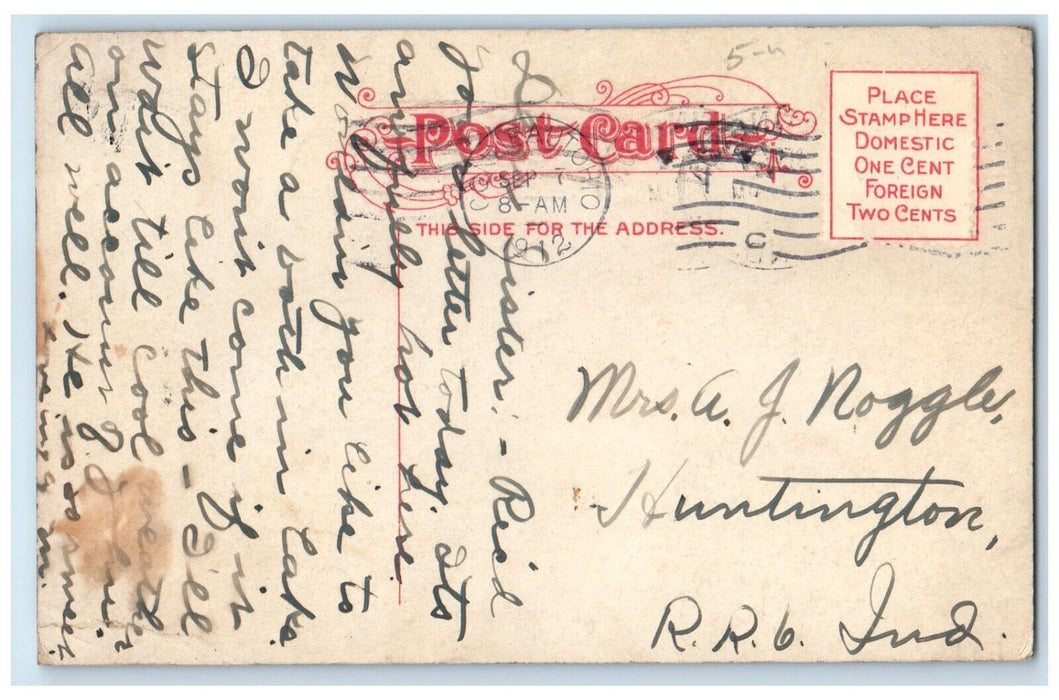 5-
Post Card
THIS SIDE FOR THE ADDRESS.
PLACE
STAMP HERE
DOMESTIC
ONE CENT
FOREIGN
TWO CENTS
CINCINNATI OHIO
SEP 7
8-AM
1912
Mrs. A. J. Noggle,
Huntington,
R.R. 6. Ind.
Dear Sister: - Rec'd
your letter today. Its
an awfully hot here.
Wouldn't you like to
take a bath in Lake.
I won't come if it
stays like this - I'll
wait till cool weather
on account of
all well. He is so sweet